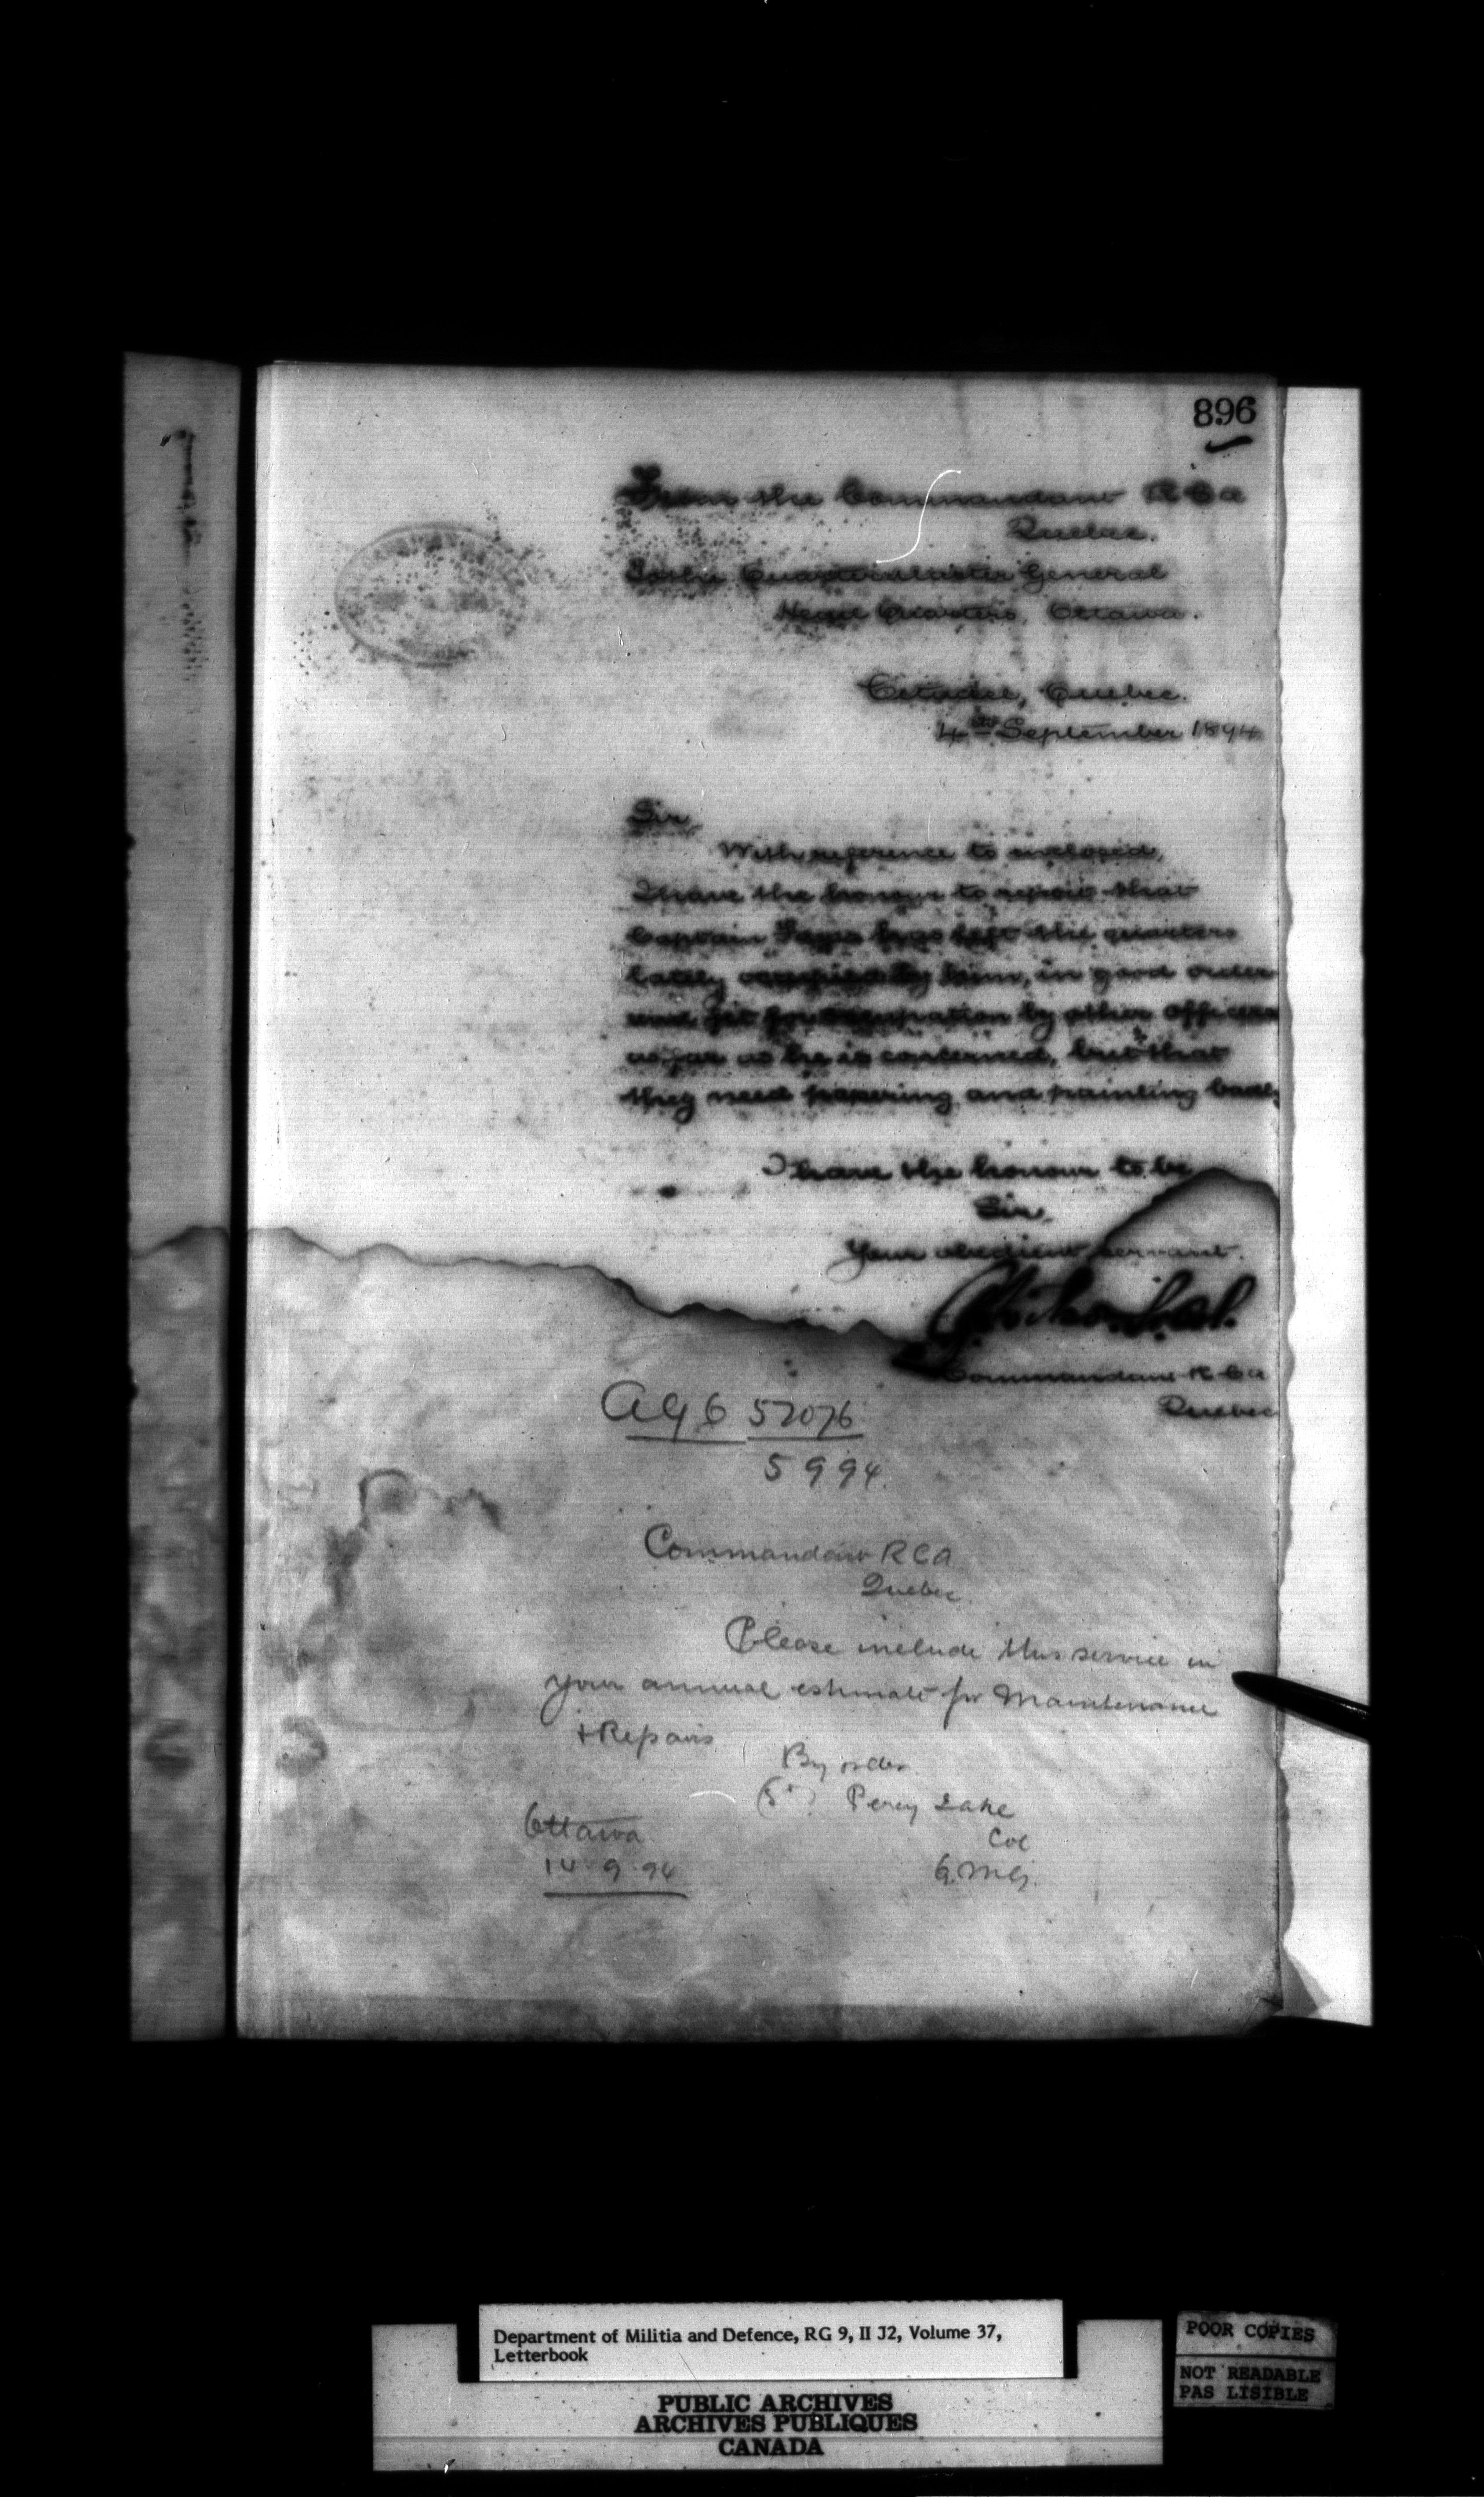 896
From the Commandant R.C.A
Quebec.
To the Quartermaster General
Head Quarters, Ottawa.
Citadel, Quebec.
4th September 1894
Sir,
With reference to enclosed,
I have the honour to report that
Captain has left the quarters
lately occupied by him, in good order
and fit for occupation by other officers
as far as he is concerned, but that
they need papering and painting badly
I have the honour to be
Sir,
Your obedient servant.
Commandant R.C.A
Quebec
AG 6 52076
5 9 94.
Commandant RCA
Quebec.
Please include this service in
your annual estimate for Maintenance
+ Repairs
By order
Percy Lake
Col
Q.M.G.
Ottawa
14 9 94
Department of Militia and Defence, RG 9, II J2, Volume 37,
Letterbook
PUBLIC ARCHIVES
ARCHIVES PUBLIQUES
CANADA
POOR COPIES
NOT READABLE
PAS LISIBLE